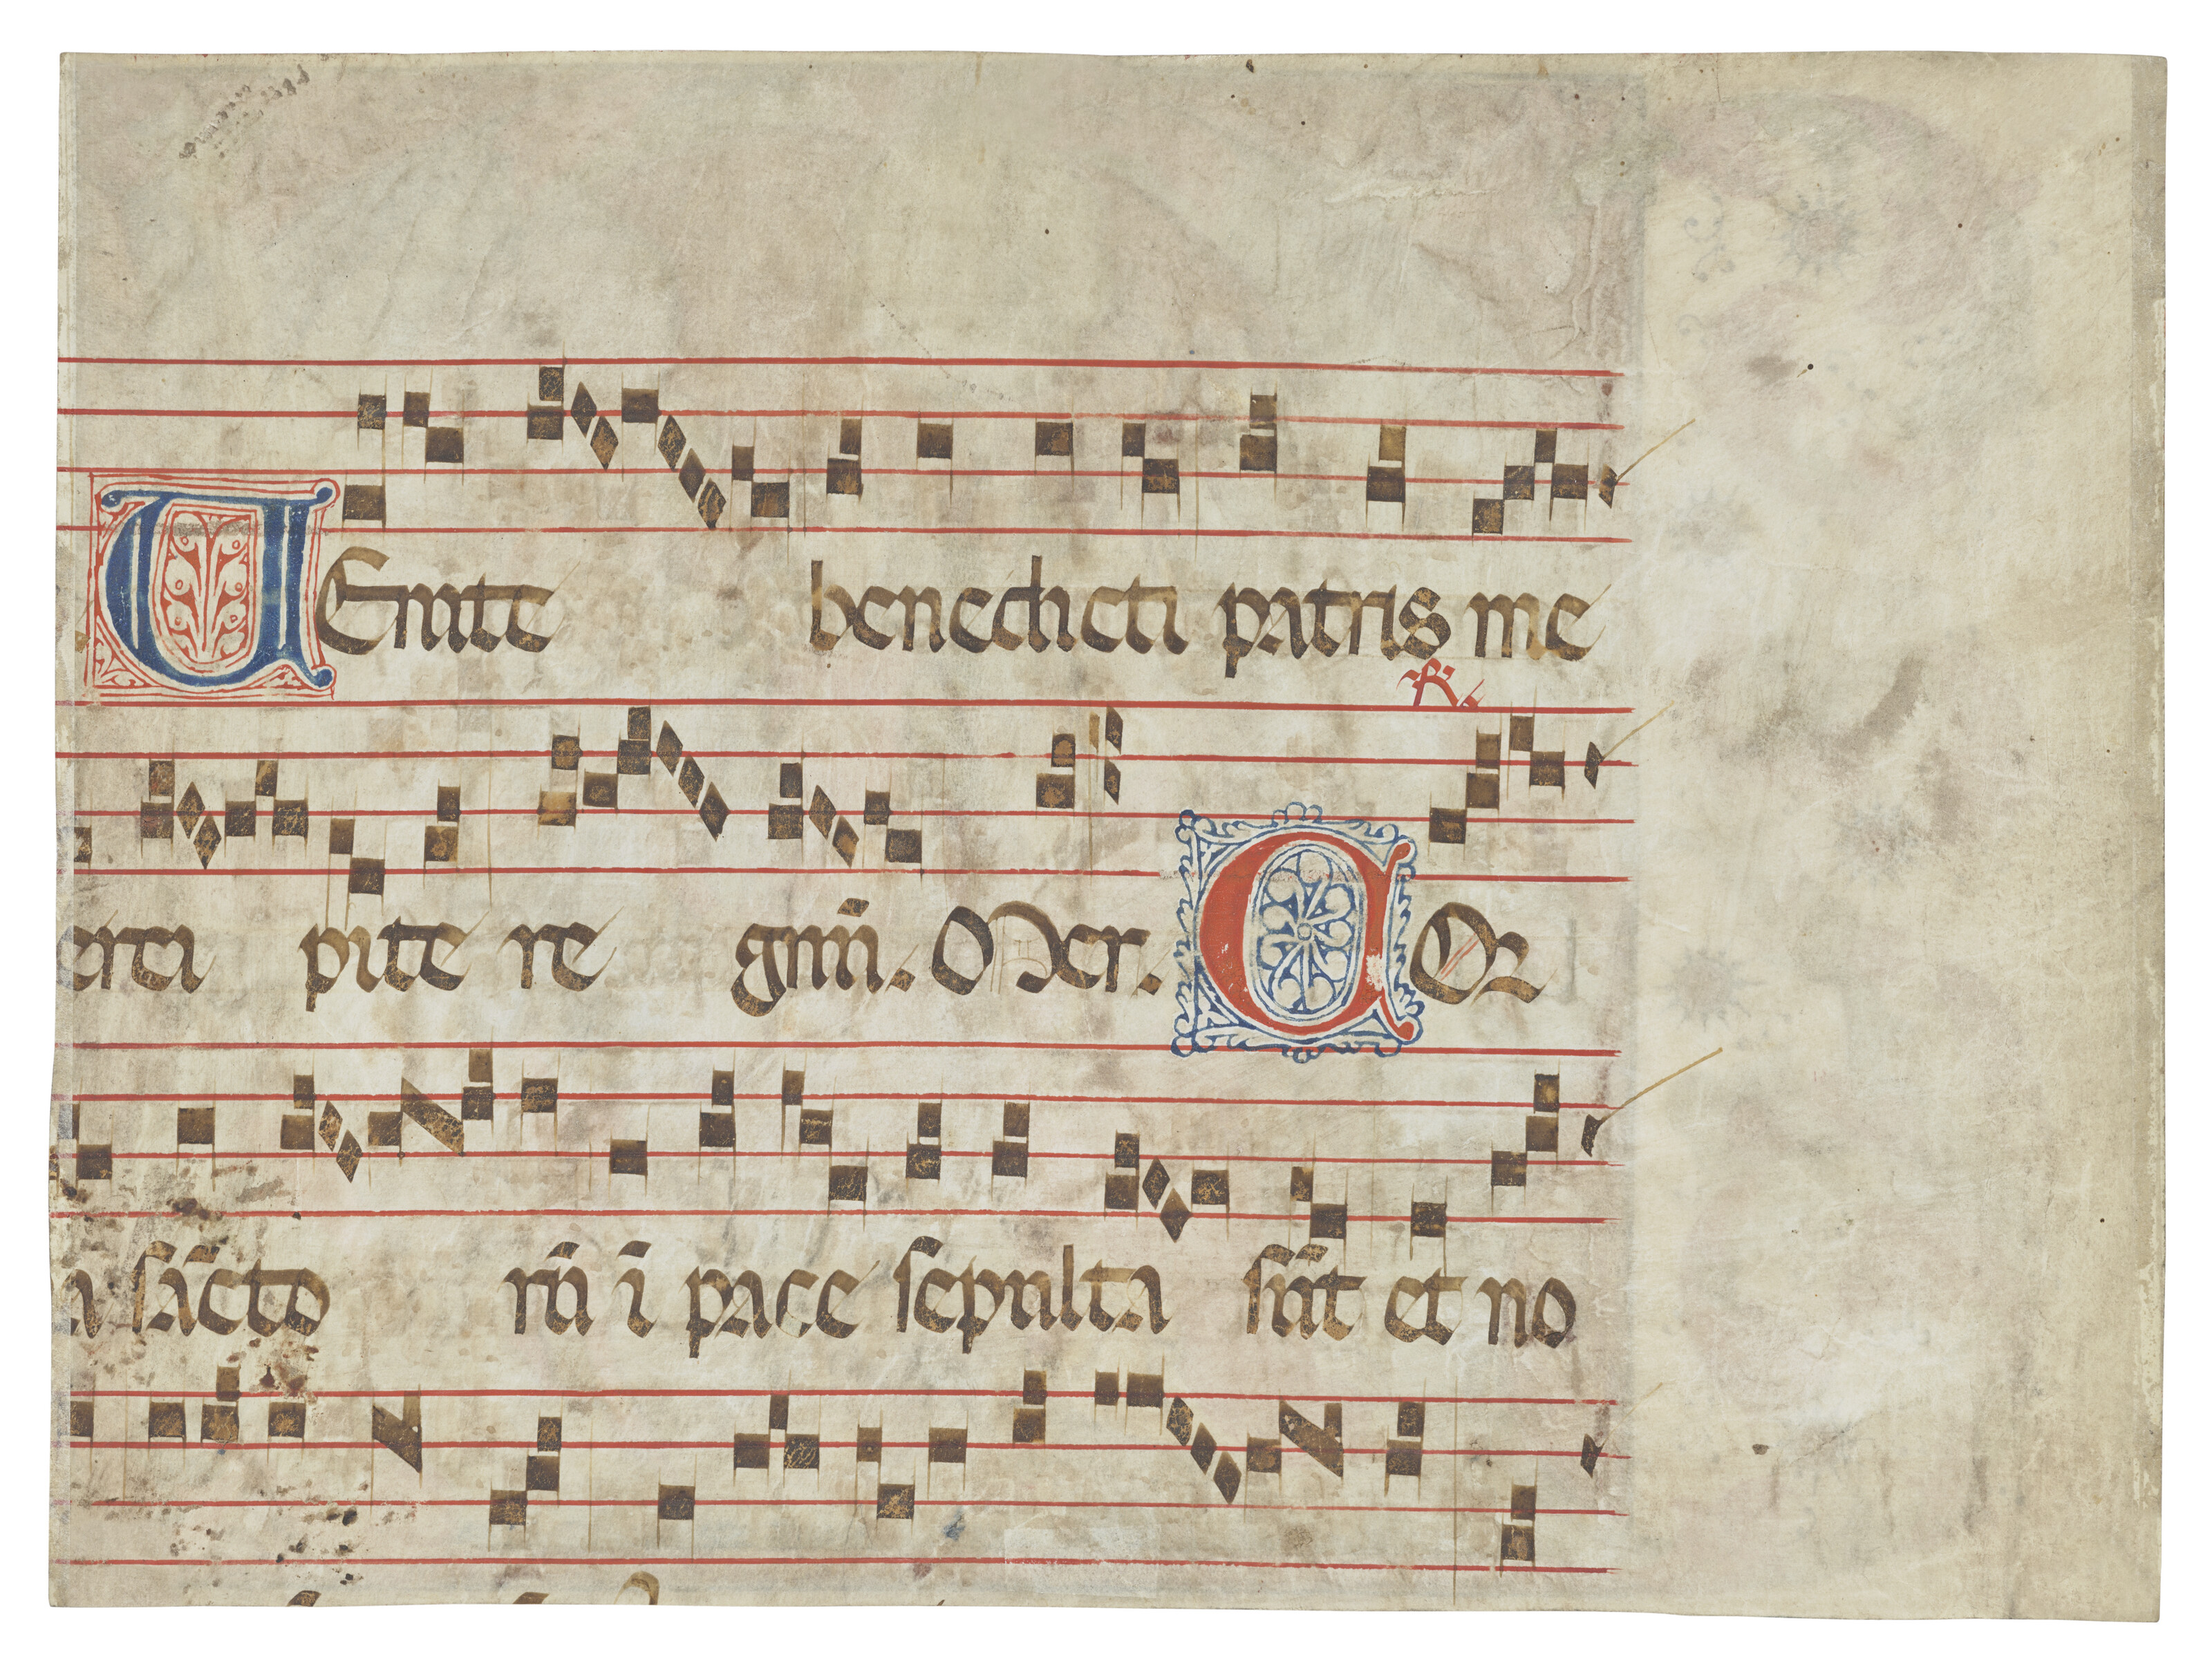 VEnite benedicti patris me
℟.
erci pite re gnū̄. O Mer. COR
a sācto rū ī pace sepulta sūt et no